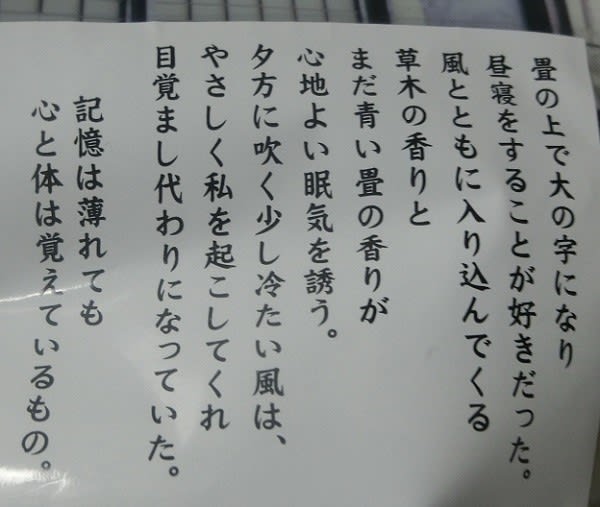 畳の上で大の字になり
昼寝をすることが好きだった。
風とともに入り込んでくる
草木の香りと
まだ青い畳の香りが
心地よい眠気を誘う。
夕方に吹く少し冷たい風は、
やさしく私を起こしてくれ
目覚まし代わりになっていた。
記憶は薄れても
心と体は覚えているもの。